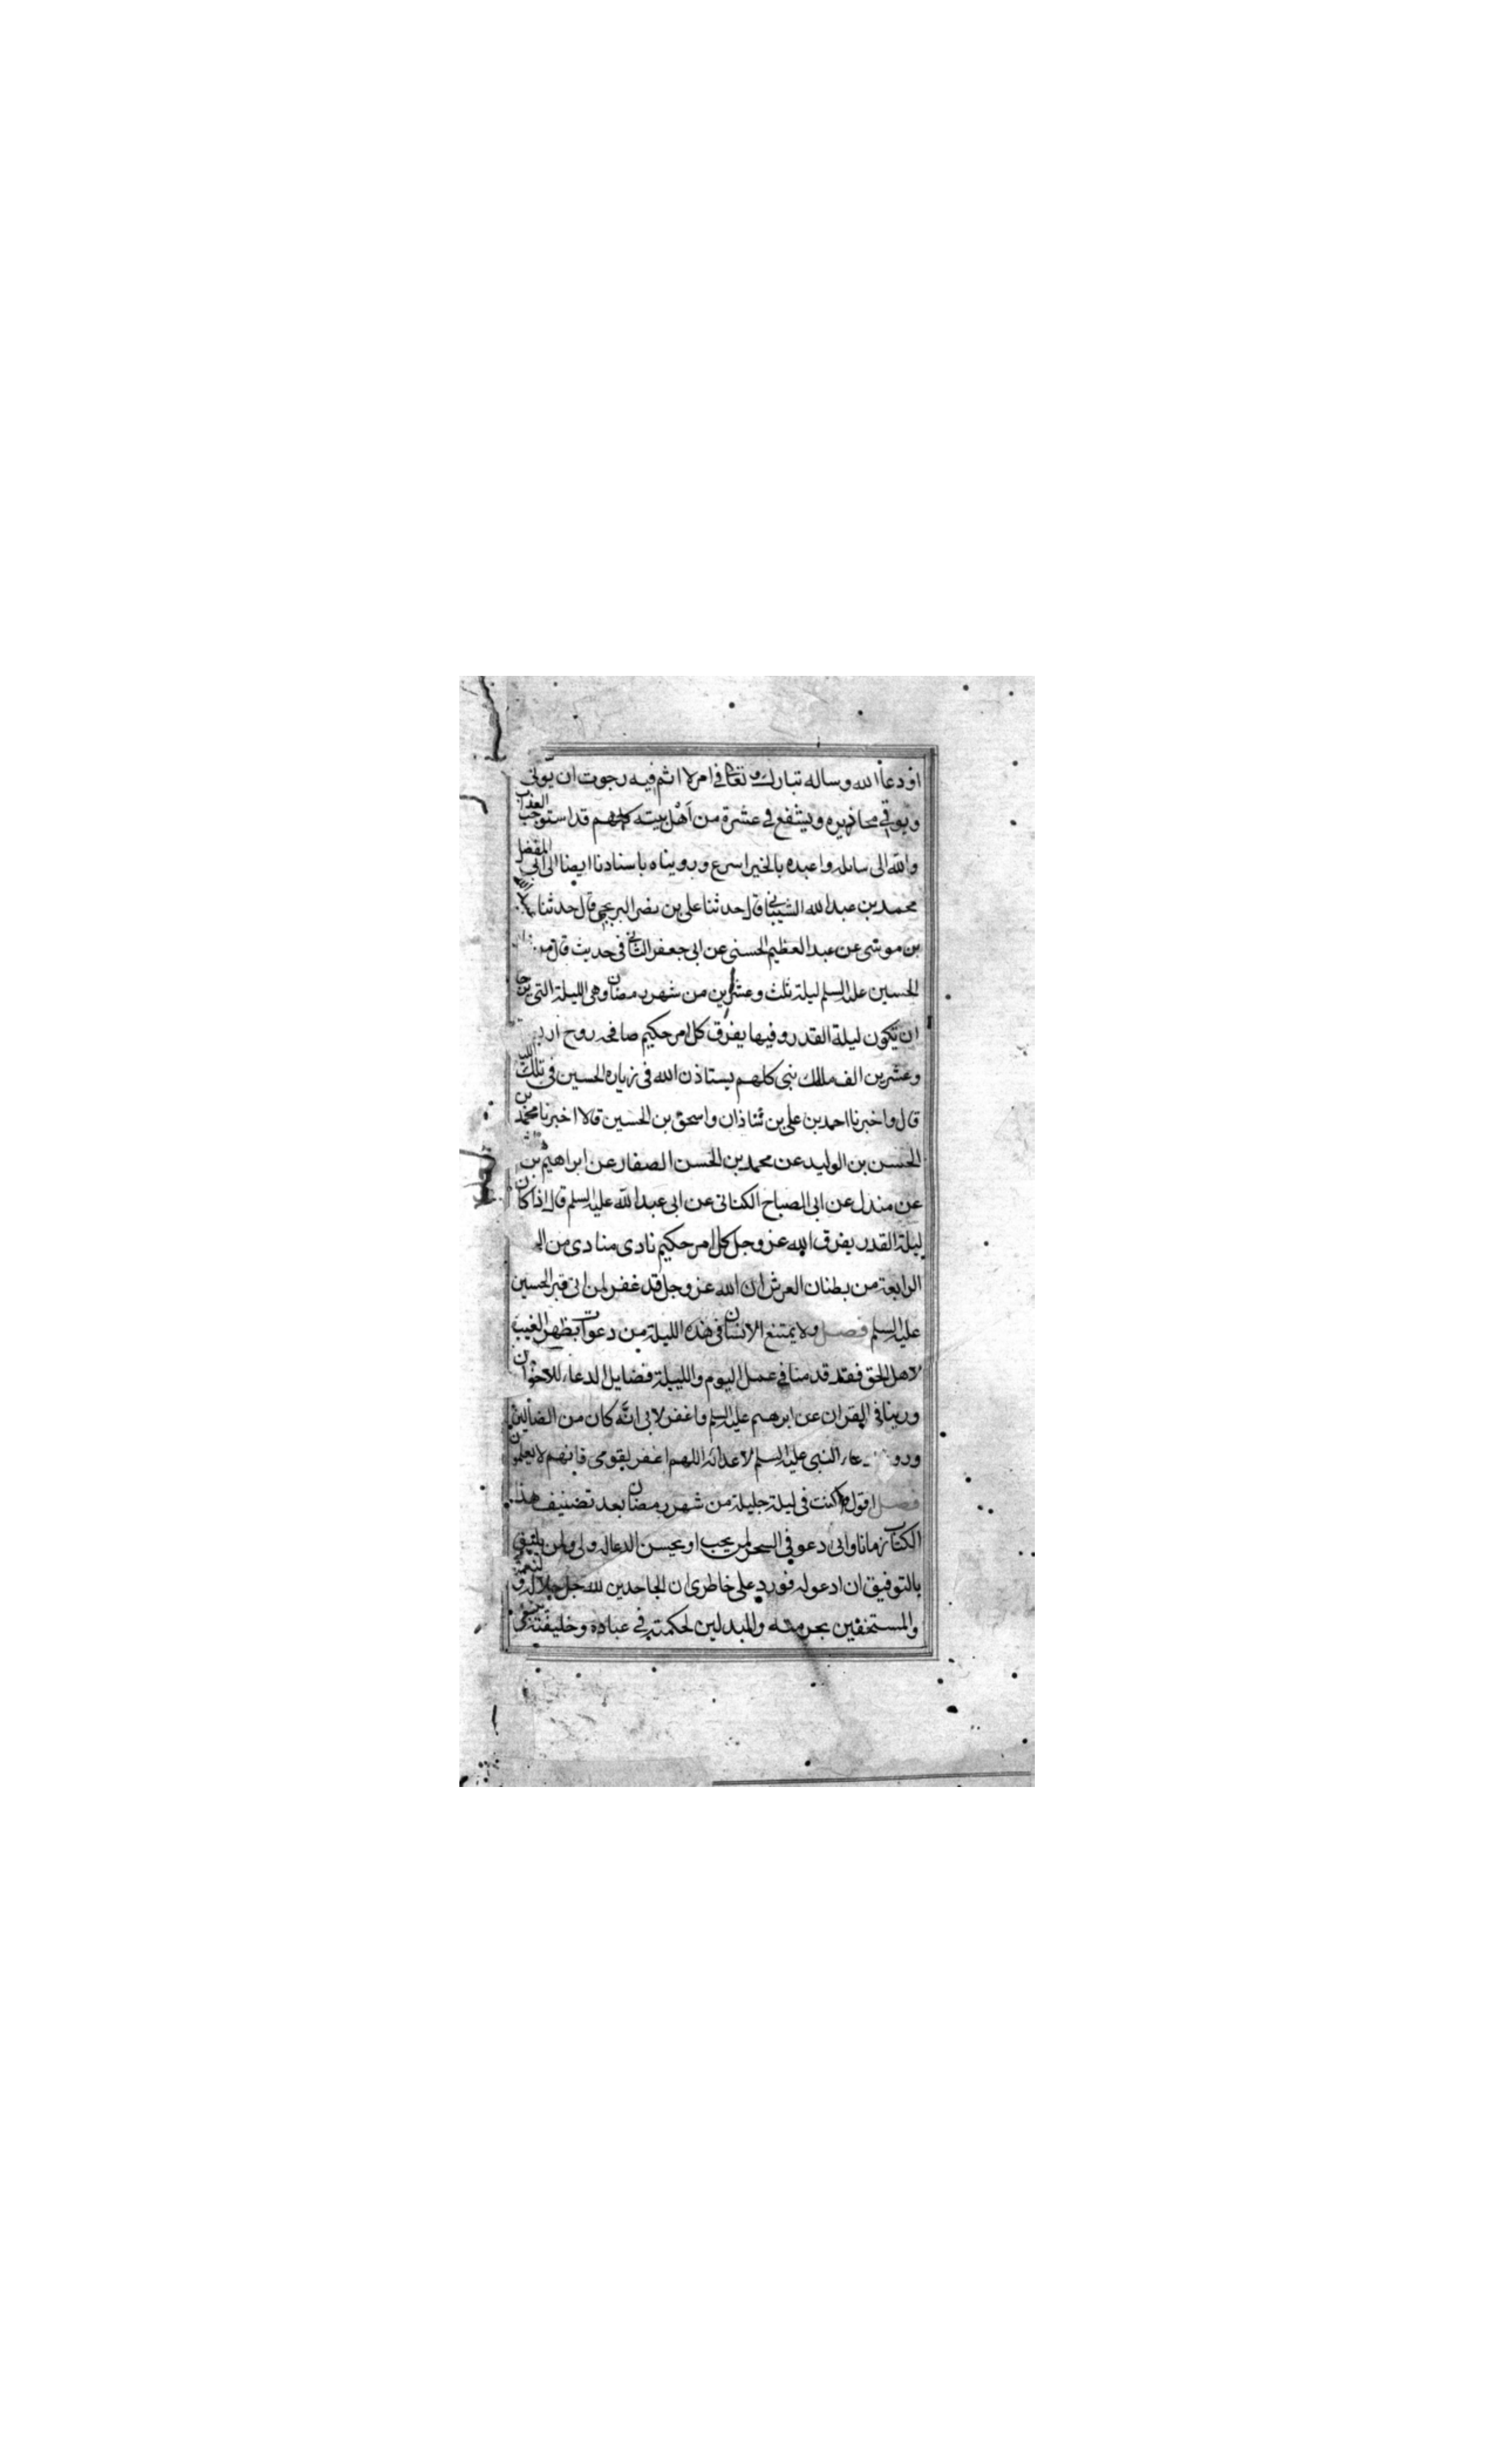 او دعا الله وساله تبارك وتعالى في امر لا اثم فيه رجوت ان يوتى
ويوقي محاذيره ويشفع في عشرة من اهل بيته كلهم قد استوجب العذاب
والله الى سائله واعبده بالخير اسرع ورويناه باسنادنا ايضا الى ابي المفضل
محمد بن عبد الله الشيباني قال حدثنا علي بن نصر البرنجي قال حدثنا
بن موسى عن عبد العظيم الحسني عن ابي جعفر الثاني في حديث قال من
الحسين عليه السلم ليلة ثلث وعشرين من شهر رمضان وهي الليلة التي يرجا
ان تكون ليلة القدر وفيها يفرق كل امر حكيم صافحه روح
وعشرين الف ملك نبي كلهم يستاذن الله في زياره الحسين في تلك الليلة
قال واخبرنا احمد بن علي بن شاذان واسحق بن الحسين قالا اخبرنا محمد بن
الحسن بن الوليد عن محمد بن الحسن الصفار عن ابراهيم بن
عن مندل عن ابي الصباح الكناني عن ابي عبد الله عليه السلم قال اذا كان
ليلة القدر يفرق الله عز وجل كل امر حكيم نادى منادى من
الرابعة من بطنان العرش ان الله عز وجل قد غفر لمن اتى قبر الحسين
عليه السلم فصل ولا يمتنع الانسان في هذه الليلة من دعوات بظهر الغيب
لاهل الحق فقد قدمنا في عمل اليوم والليلة فضايل الدعاء للاخوان
وروينا في القران عن ابرهيم عليه السلم واغفر لابي انه كان من الضالين
النبي عليه السلم لاعدائه اللهم اغفر لقومي فانهم لا يعلمون
فصل اقول وكنت في ليلة جليلة من شهر رمضان بعد تصنيف هذا
الكتاب زمانا واني دعو في السحر لمن يجب او يحسن الدعا له ولي ولمن يليق
بالتوفيق ان ادعو له فورد على خاطري ان الجاحدين لله جل جلاله و لنعمه
والمستخفين بحرمته والمبدلين لحكمته في عباده وخليقته